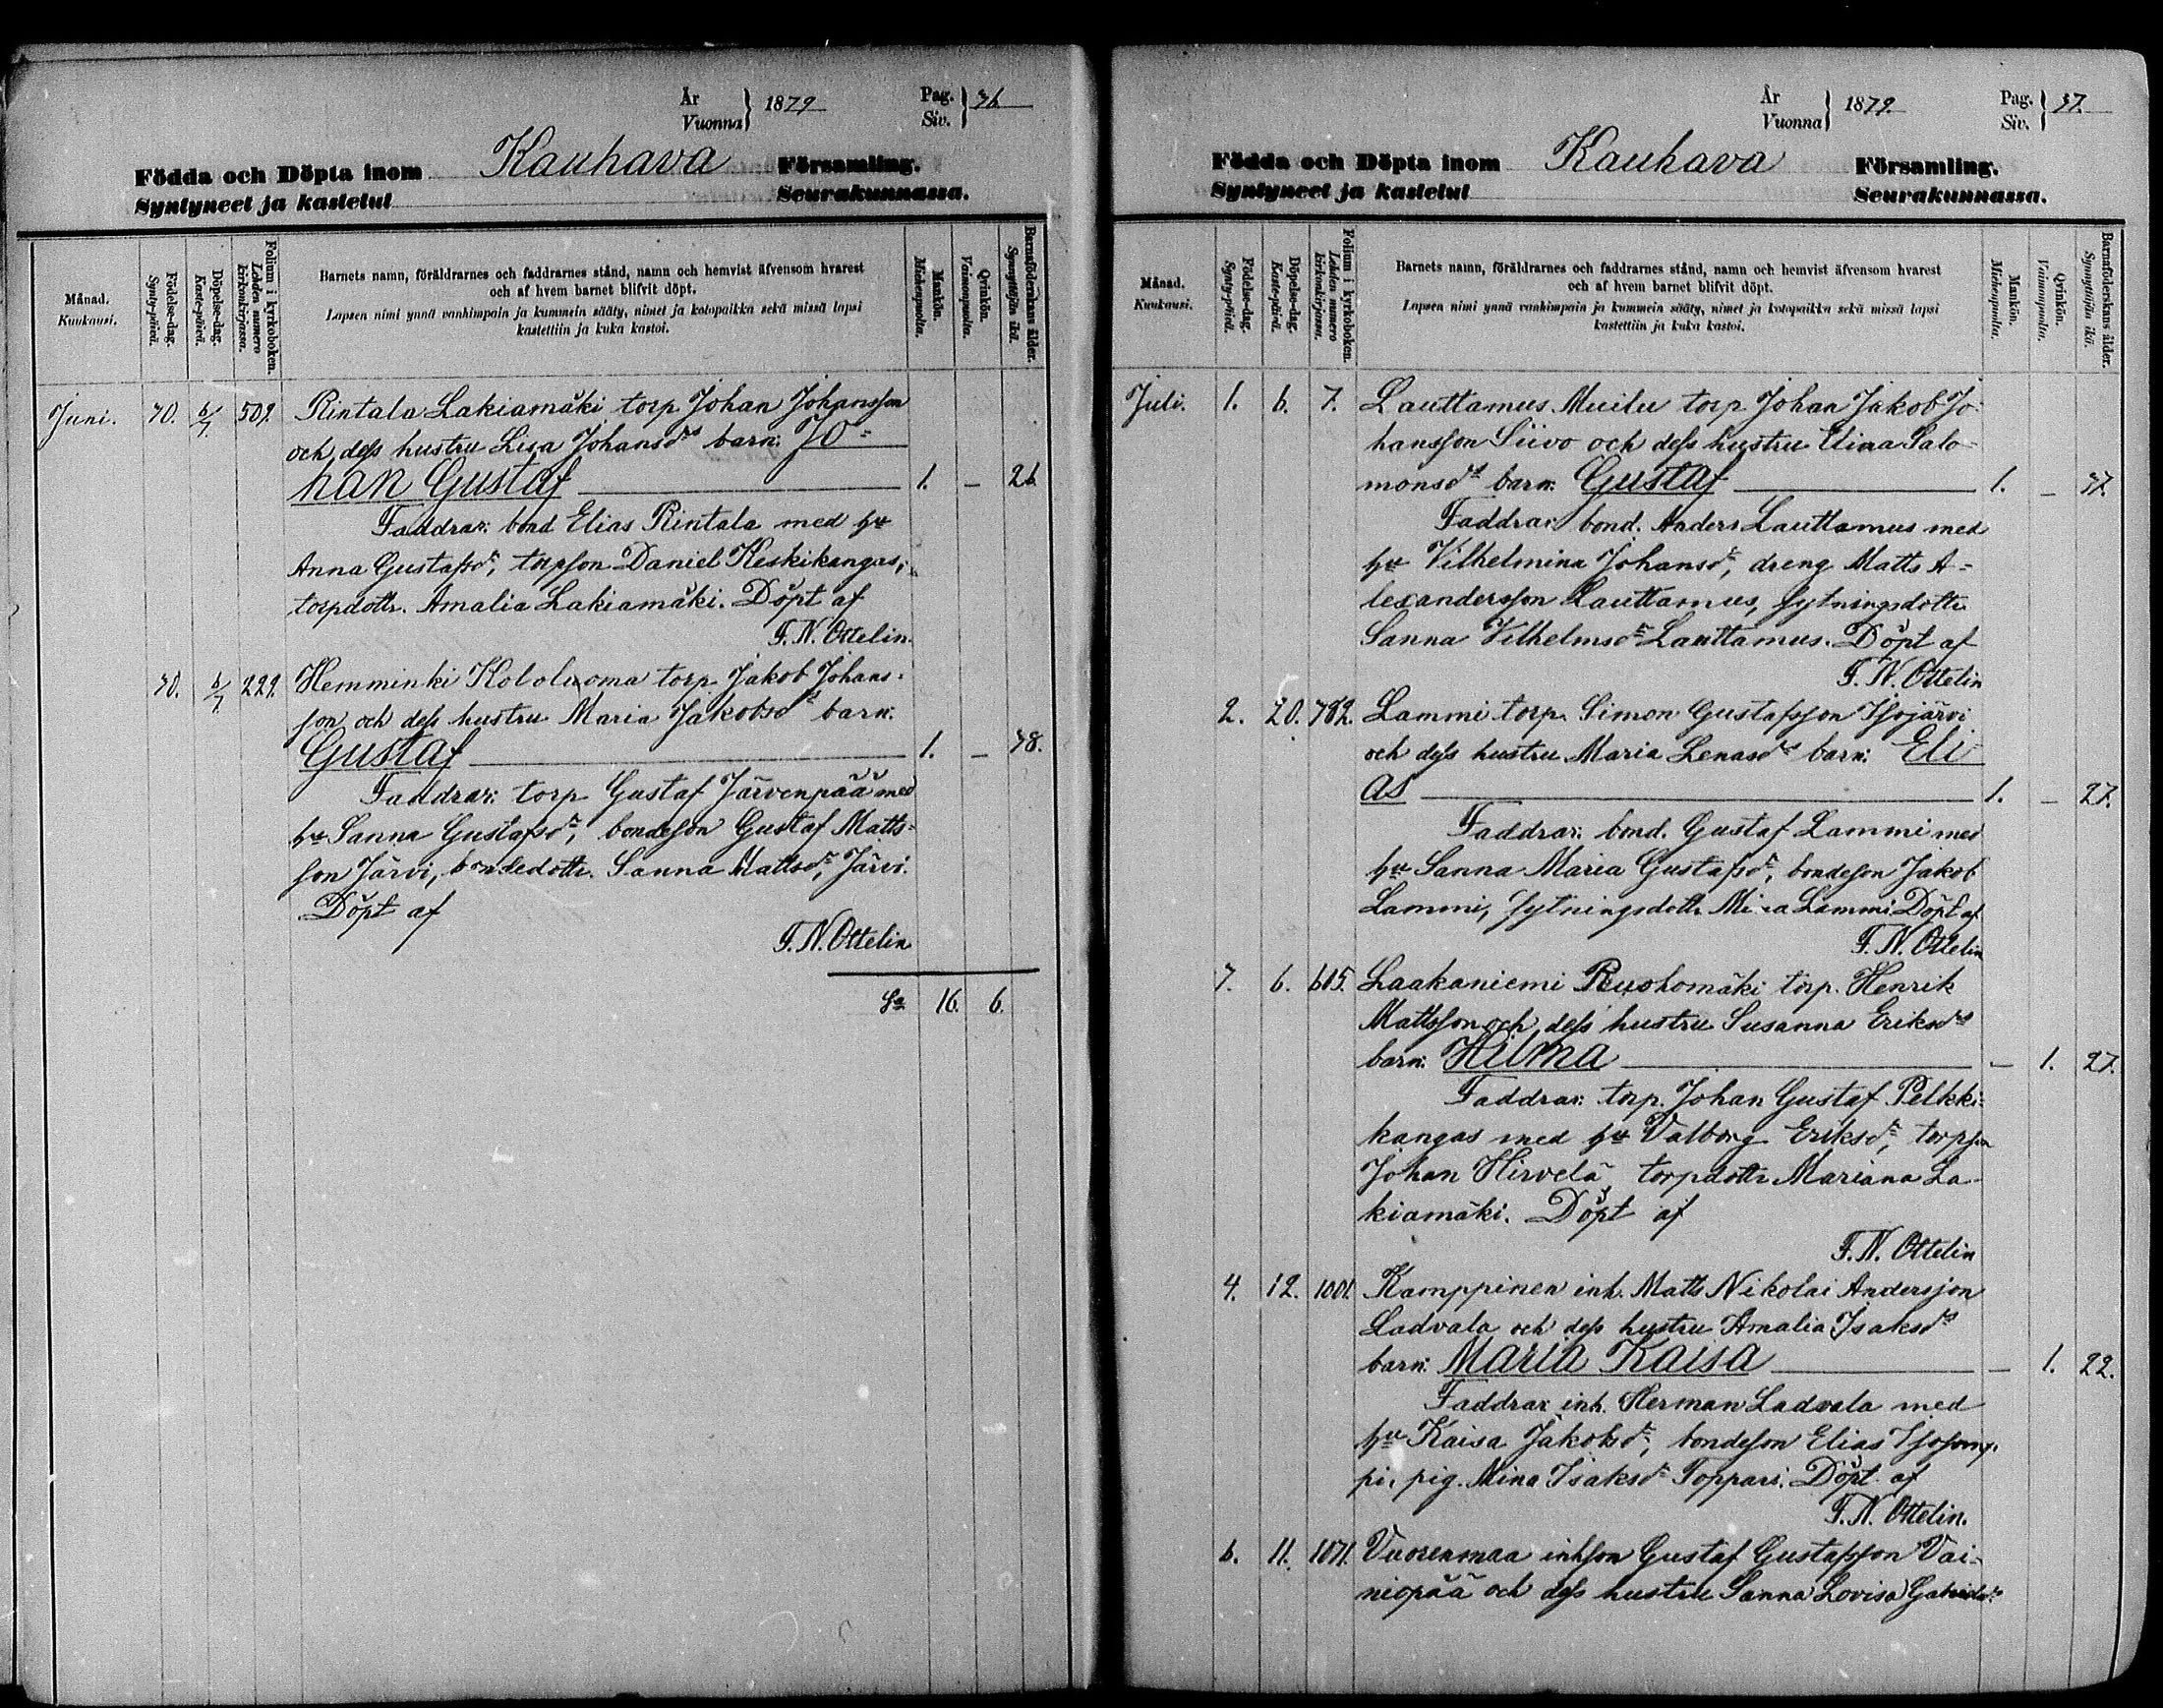 År
Vuonna } 1879
Pag.
Siv. } 36
Födda och Döpta inom Kauhava Församling.
Syntyneet ja kastetut Seurakunnassa.
Månad.
Kuukausi.
Födelse-dag.
Synty-päivä.
Döpelse-dag.
Kaste-päivä.
Folium i kyrkoboken.
Lehden numero
kirkonkirjassa.
Barnets namn, föräldrarnes och faddrarnes stånd, namn och hemvist äfvensom hvarest
och af hvem barnet blifvit döpt.
Lapsen nimi ynnä vanhimpain ja kummein sääty, nimet ja kotopaikka sekä missä lapsi
kastettiin ja kuka kastoi.
Mankön.
Miehenpuolta.
Qvinkön.
Vaimonpuolta.
Barnaföderskans ålder.
Synnyttäjän ikä.
Juni. 30. 6/7. 509. Rintala Lakiamäki torp. Johan Johansson
och dess hustru Lisa Johansdrs barn: Jo=
han Gustaf 1. — 26
Faddrar: bond Elias Rintala med hu
Anna Gustafsdr, torpson Daniel Keskikangas,
torpdottr. Amalia Lakiamäki. Döpt af
F. N. Ottelin.
30. 6/7. 229. Hemminki Kololuoma torp. Jakob Johans=
son och dess hustru Maria Jakobsdrs barn:
Gustaf 1. — 38.
Faddrar: torp Gustaf Järvenpää med
hu Sanna Gustafsdr, bondeson Gustaf Matts=
son Järvi, bondedottr. Sanna Mattsdr, Järvi.
Döpt af
F. N. Ottelin
Sa 16. 6.
År
Vuonna } 1879.
Pag.
Siv. } 37.
Födda och Döpta inom Kauhava Församling.
Syntyneet ja kastetut Seurakunnassa.
Månad.
Kuukausi.
Födelse-dag.
Synty-päivä.
Döpelse-dag.
Kaste-päivä.
Folium i kyrkoboken.
Lehden numero
kirkonkirjassa.
Barnets namn, föräldrarnes och faddrarnes stånd, namn och hemvist äfvensom hvarest
och af hvem barnet blifvit döpt.
Lapsen nimi ynnä vanhimpain ja kummein sääty, nimet ja kotopaikka sekä missä lapsi
kastettiin ja kuka kastoi.
Mankön.
Miehenpuolta.
Qvinkön.
Vaimonpuolta.
Barnaföderskans ålder.
Synnyttäjän ikä.
Juli. 1. 6. 7. Lauttamus Muilu torp Johan Jakob Jo=
hansson Siivo och dess hustru Elina Salo=
monsdrs barn: Gustaf 1. — 37.
Faddrar: bond. Anders Lauttamus med
hu Vilhelmina Johansdr, dreng Matts A=
lexandersson Lauttamus, sytningsdottr
Sanna Vilhelmsdr Lauttamus. Döpt af
F. N. Ottelin
2. 20. 382. Lammi torp. Simon Gustafsson Isojärvi
och dess hustru Maria Lenasdrs barn: Eli=
as 1. — 27.
Faddrar: bond. Gustaf Lammi med
hu Sanna Maria Gustafsdr, bondeson Jakob
Lammi, sytningsdottr. Mina Lammi Döpt af
F. N. Ottelin
3. 6. 605. Laakaniemi Ruohomäki torp. Henrik
Mattsson och dess hustru Susanna Eriksdrs
barn: Hilma — 1. 27.
Faddrar: torp. Johan Gustaf Pelkki=
kangas med hu Valborg Eriksdr, torpson
Johan Hirvelä, torpdottr Mariana La=
kiamäki. Döpt af
F. N. Ottelin
4. 12. 1001. Kamppinen inh. Matts Nikolai Andersson
Ladvala och dess hustru Amalia Isaksdrs
barn: Maria Kaisa — 1. 22.
Faddrar: inh. Herman Ladvala med
hu Kaisa Jakobsdr, bondeson Elias Isosomp=
pi, pig. Mina Isaksdr Toppari. Döpt af
F. N. Ottelin.
6. 11. 1071. Vuorenmaa inhson Gustaf Gustafsson Vai=
niopää och dess hustru Sanna Lovisa Gabrielsdrs